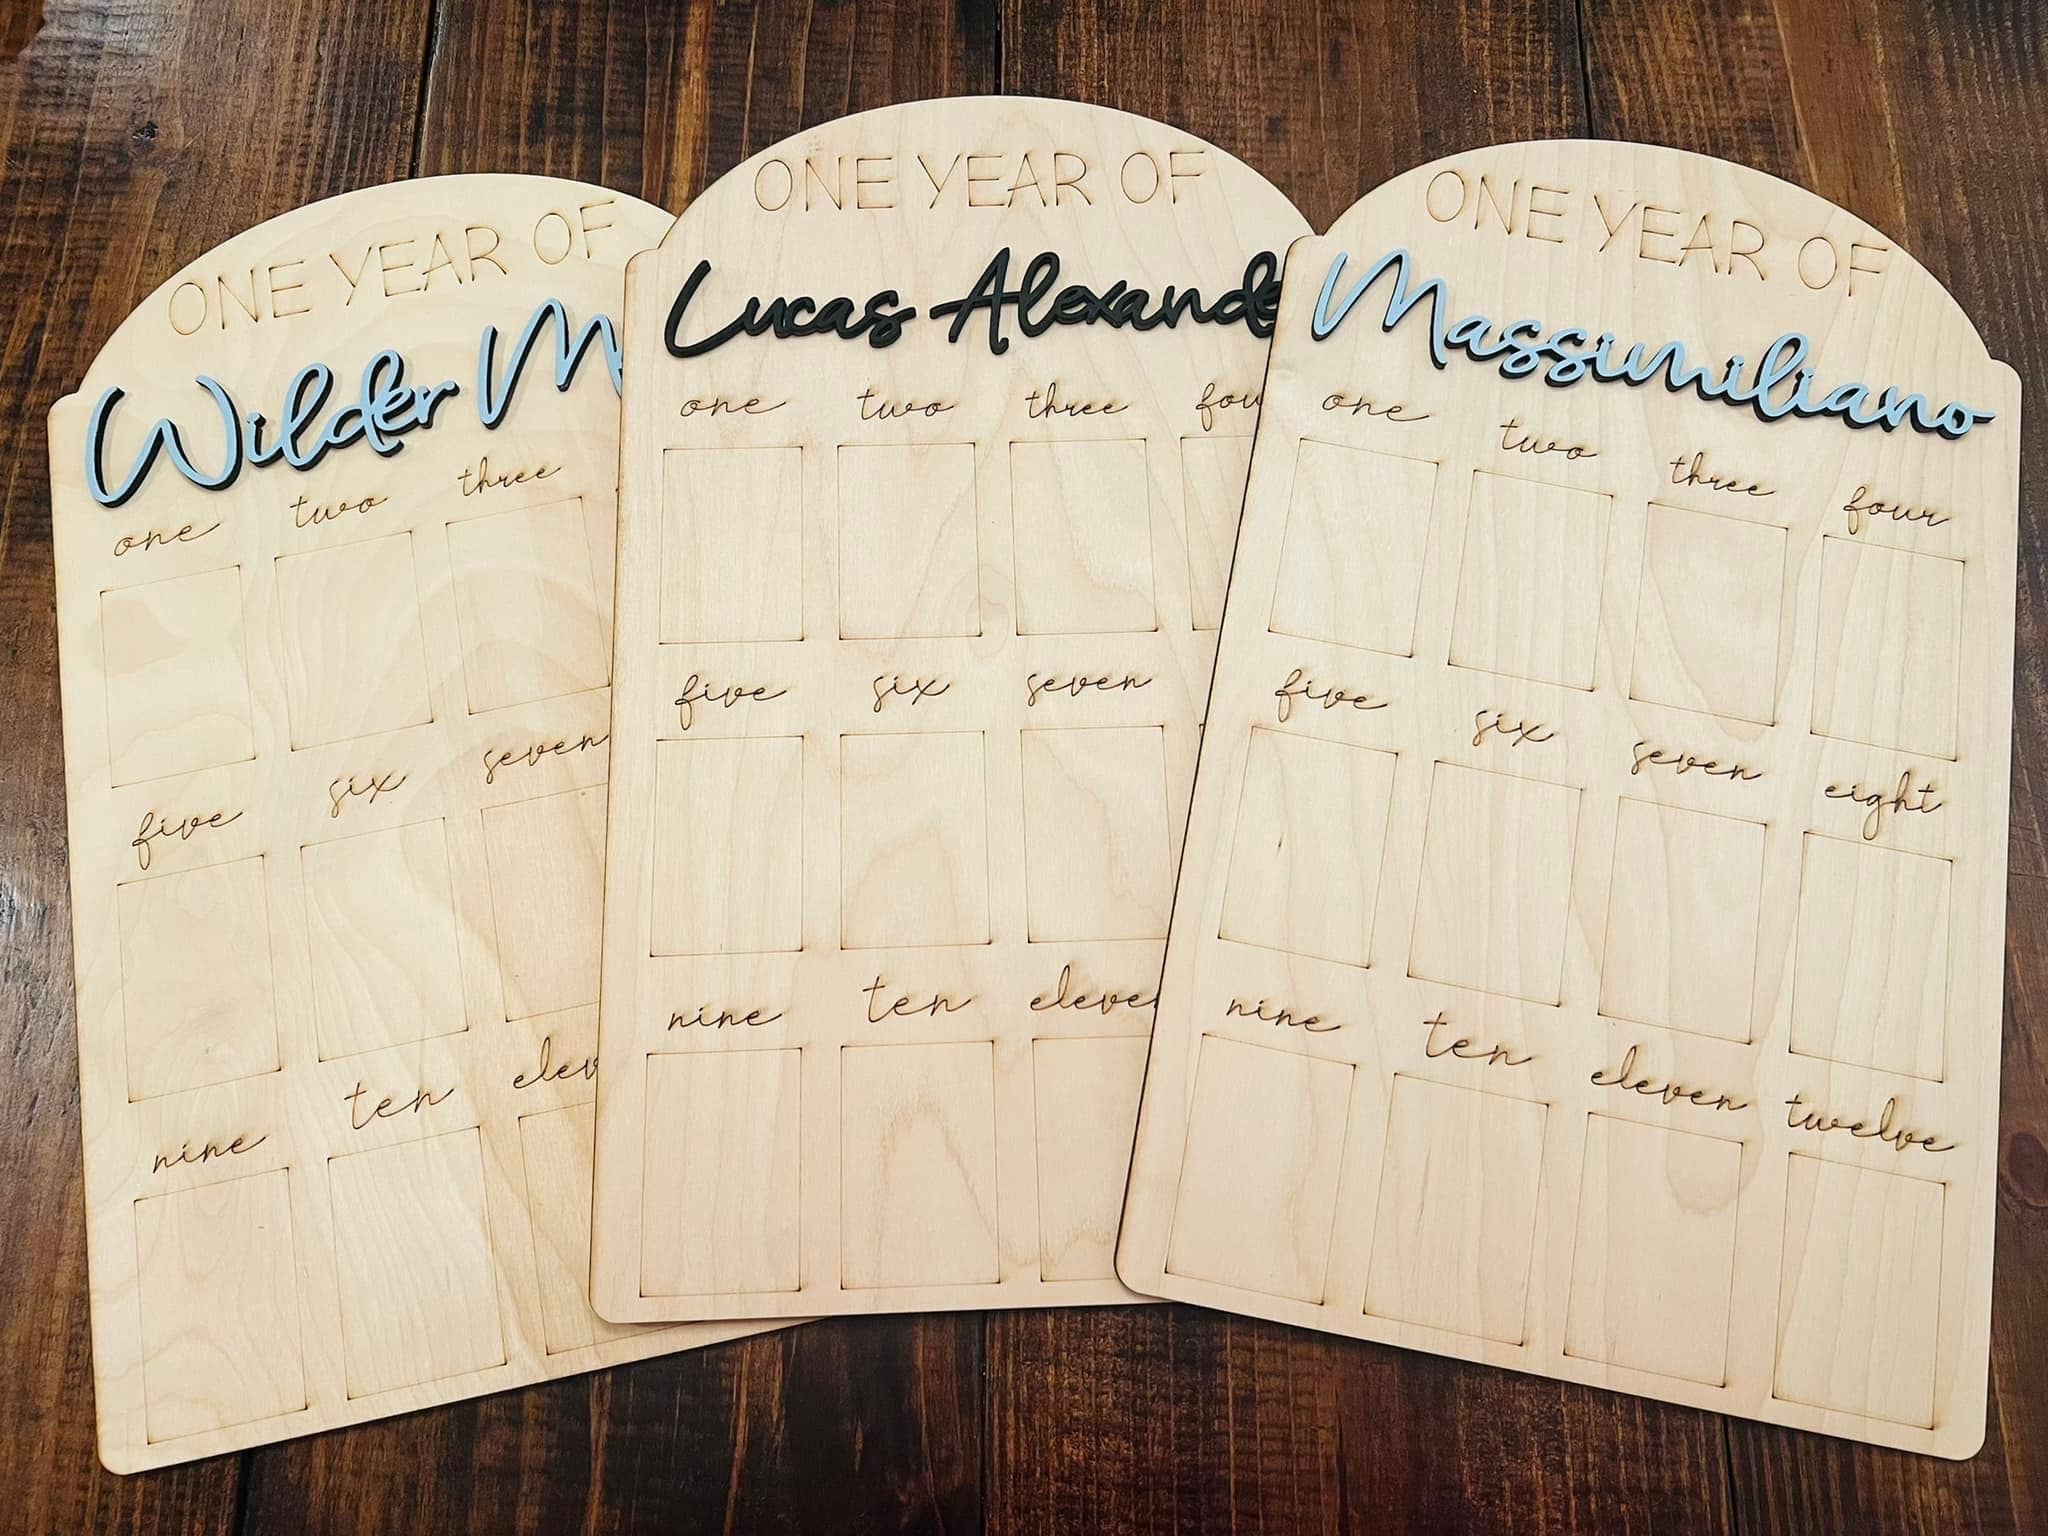 ONE YEAR OF
Wilder M
one two three
five six seven
nine ten elev
ONE YEAR OF
Lucas Alexande
one two three fou
five six seven
nine ten eleve
ONE YEAR OF
Massimiliano
one two three four
five six seven eight
nine ten eleven twelve